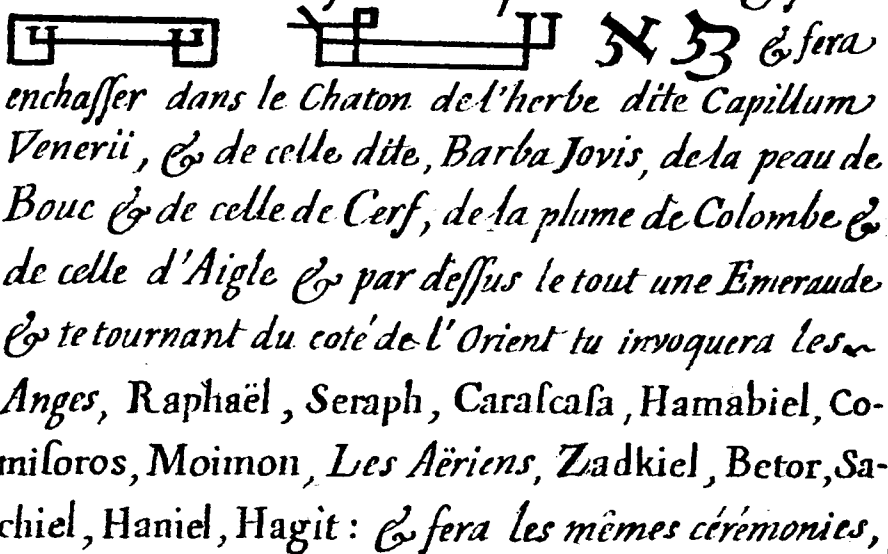 & fera
enchaſſer dans le Chaton de l'herbe dite Capillum
Venerii, & de celle dite, Barba Jovis, de la peau de
Bouc & de celle de Cerf, de la plume de Colombe &
de celle d'Aigle & par deſſus le tout une Emeraude
& te tournant du coté de l'Orient tu invoquera les
Anges, Raphaël, Seraph, Caraſcaſa, Hamabiel, Co-
miſoros, Moimon, Les Aëriens, Zadkiel, Betor, Sa-
chiel, Haniel, Hagit: & fera les mêmes cérémonies,